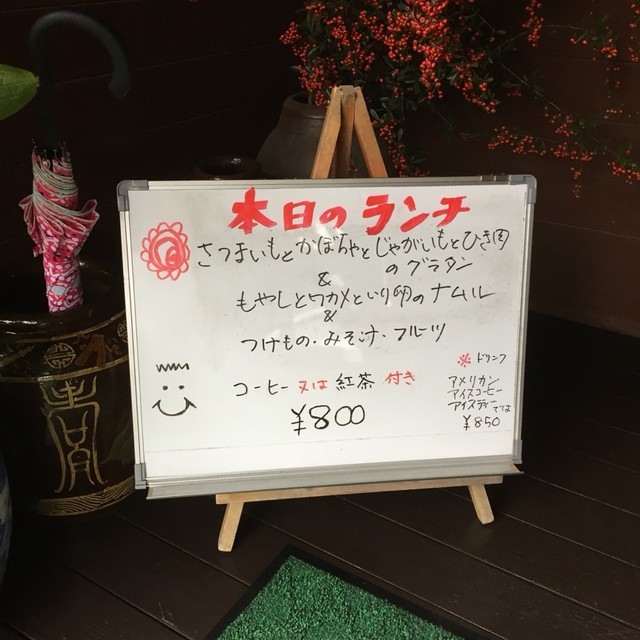 本日のランチ
さつまいもとかぼちゃとじゃがいもとひき肉
のグラタン
&
もやしとワカメといり卵のナムル
&
つけもの・みそ汁・フルーツ
コーヒー又は紅茶付き
¥800
※ドリンク
アメリカン
アイスコーヒー
アイスティー
では
¥850